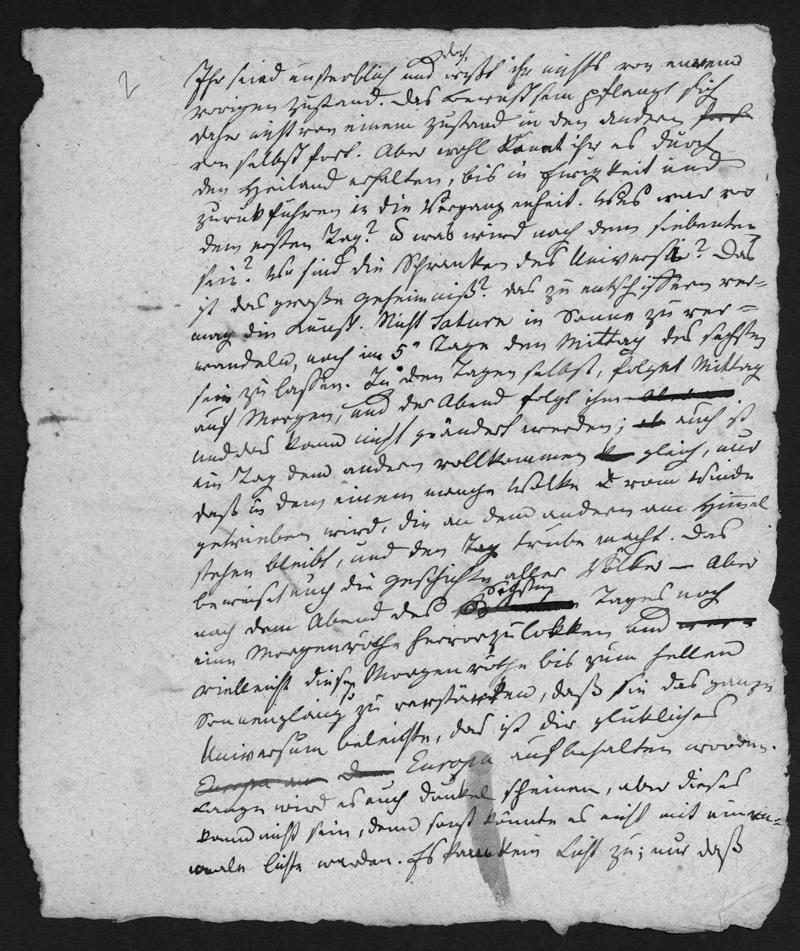 2
doch
Ihr seied unsterblich und wißt ihr nichts von euerem
vorigen Zustand. Das Bewußtsein pflanzt sich
daher nicht von einem Zustand in den anderen fort
von selbst fort. Aber wohl könnt ihr es durch
den Heiland erhalten, bis in Ewigkeit und
zurükführen in die Vergangenheit. Was war vor
dem ersten Tag? u was wird nach dem siebenten
sein? Wo sind die Schranken des Universi? Das
ist das große Geheimniß? das zu entschiffern ver=
mag die Kunst. Nicht Saturn in Sonne zu ver=
wandeln, noch im 5n Tage den Mittag des sechsten
sein zu lassen. In den Tagen selbst, folget Mittag
auf Morgen, und der Abend folgt ihm
und das kann nicht geändert werden; auch ist
ein Tag dem andern vollkommen gleich, nur
daß in dem einem manche Wolke vom Winde
getrieben wird, die an dem andern am Himmel
stehen bleibt, und den Tag trübe macht. Das
beweist euch die Geschichte aller Völker — Aber
sechsten
nach dem Abend des Tages noch
eine Morgenröthe hervorzulokken und
vielleicht diese Morgenröthe bis zum hellen
Sonnenglanz zu verstärken, daß sie das ganze
Universum beleuchte, das ist dir glükliches
Europa aufbehalten worden.
Lange wird es euch dunkel scheinen, aber dieses
kann nicht sein, denn sonst könnte es nicht mit einem=
male lichte werden. Es kam kein Licht zu; nur daß